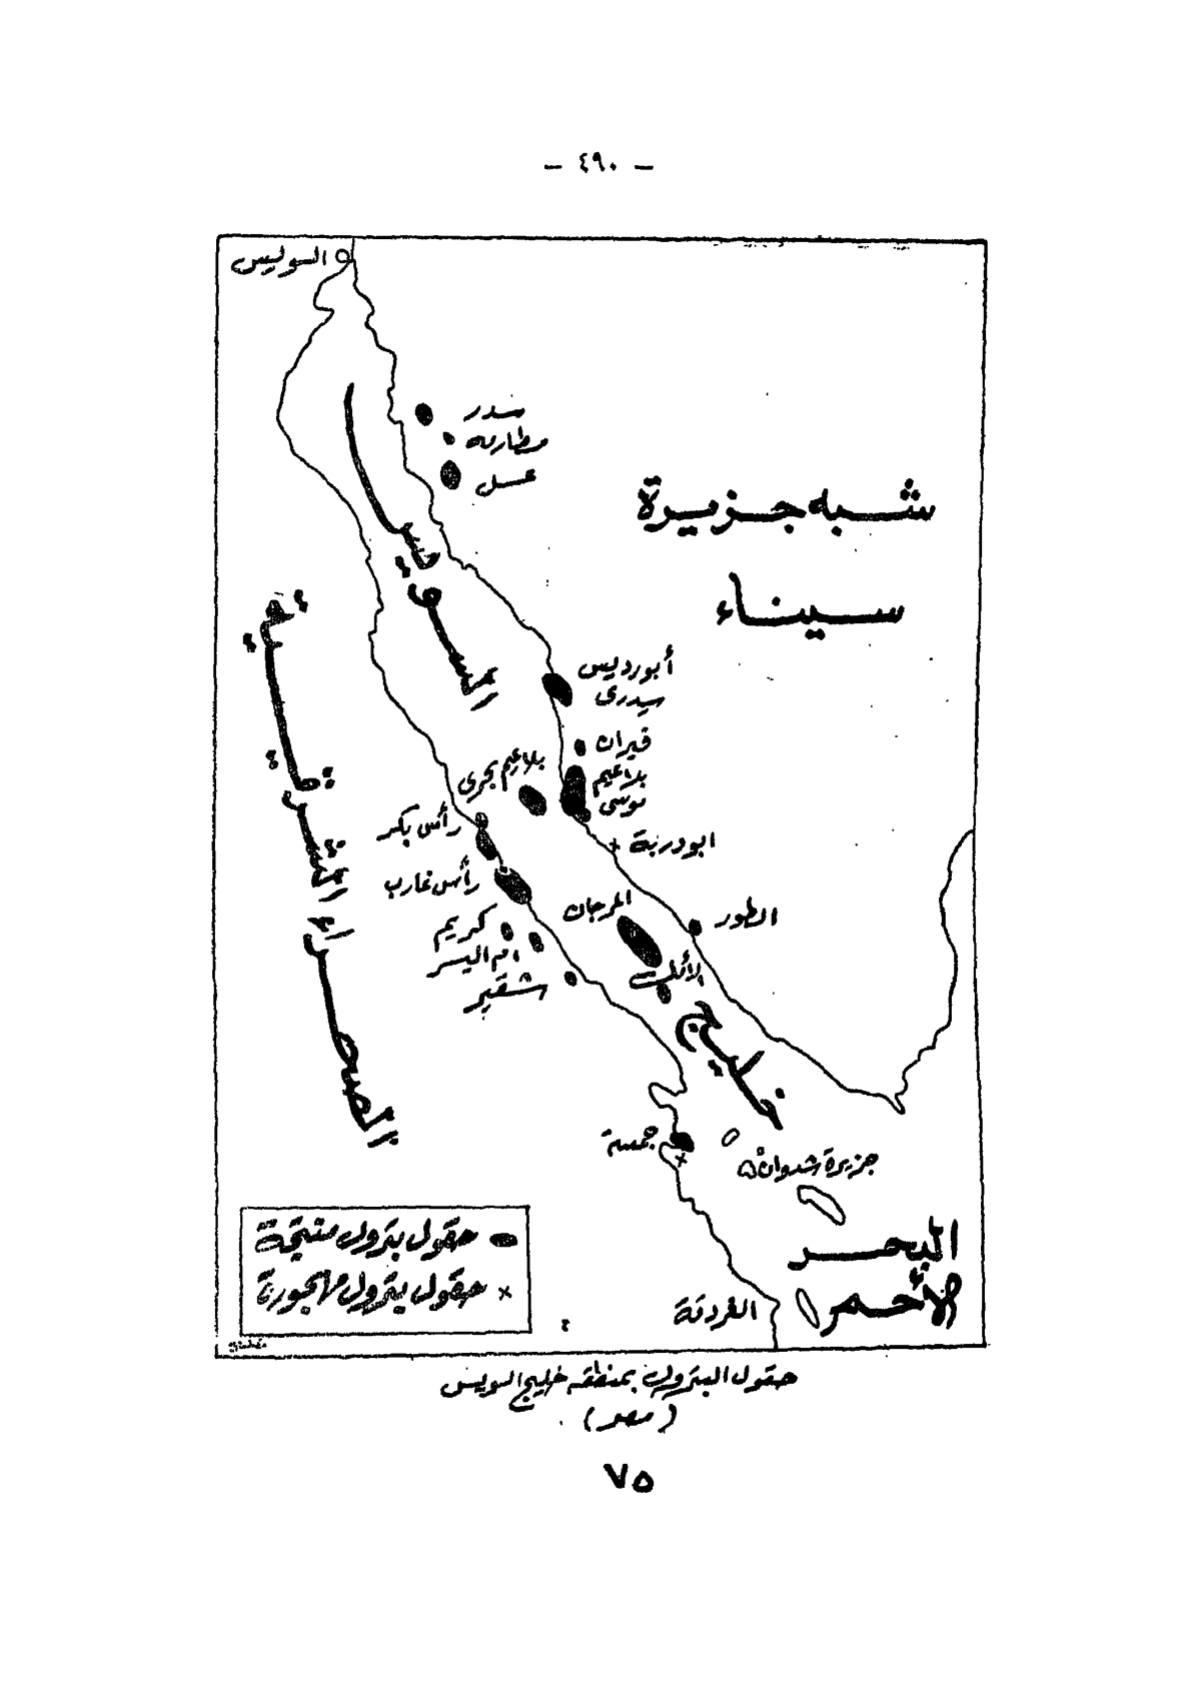 - ٤٩٠ -
السويس
سدر
مطارمه
عسل
شبه جزيرة
سيناء
خليج السويس
الصحراء الشرقية
أبورديس
سيدرى
فيران
بلاعيم
موسى
بلاعيم بحرى
رأس بكر
ابودربة
رأس غارب
المرجان
الطور
كريم
ام اليسر
شقير
جمسة
جزيرة شدوان
البحر
الأحمر
الغردقة
حقول بترول منتجة
× حقول بترول مهجورة
حقول البترول بمنطقه خليج السويس
(مصر)
٧٥